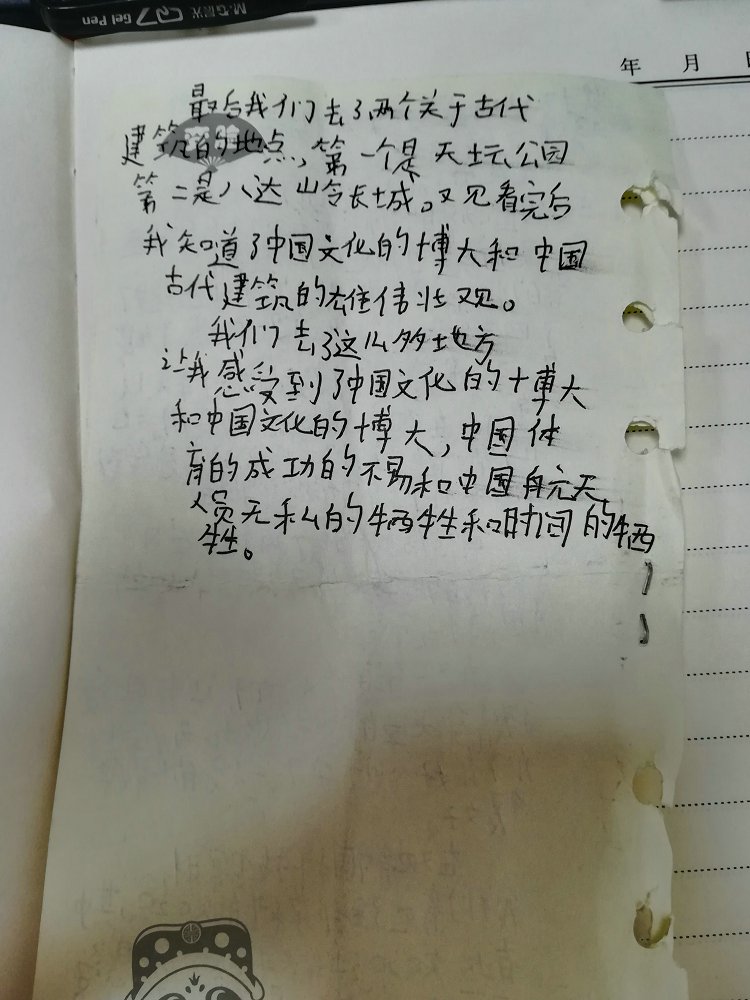 M&G晨光 Q7 Gel Pen
年 月 日
最后我们去了两个关于古代
建筑的地点,第一个是天坛公园
第二是八达岭长城。观看完后
我知道了中国文化的博大和中国
古代建筑的雄伟壮观。
我们去了这么多地方
让我感受到了中国文化的博大
和中国文化的博大,中国体
育的成功的不易和中国航天
人员无私的牺牲和时间的牺
牲。